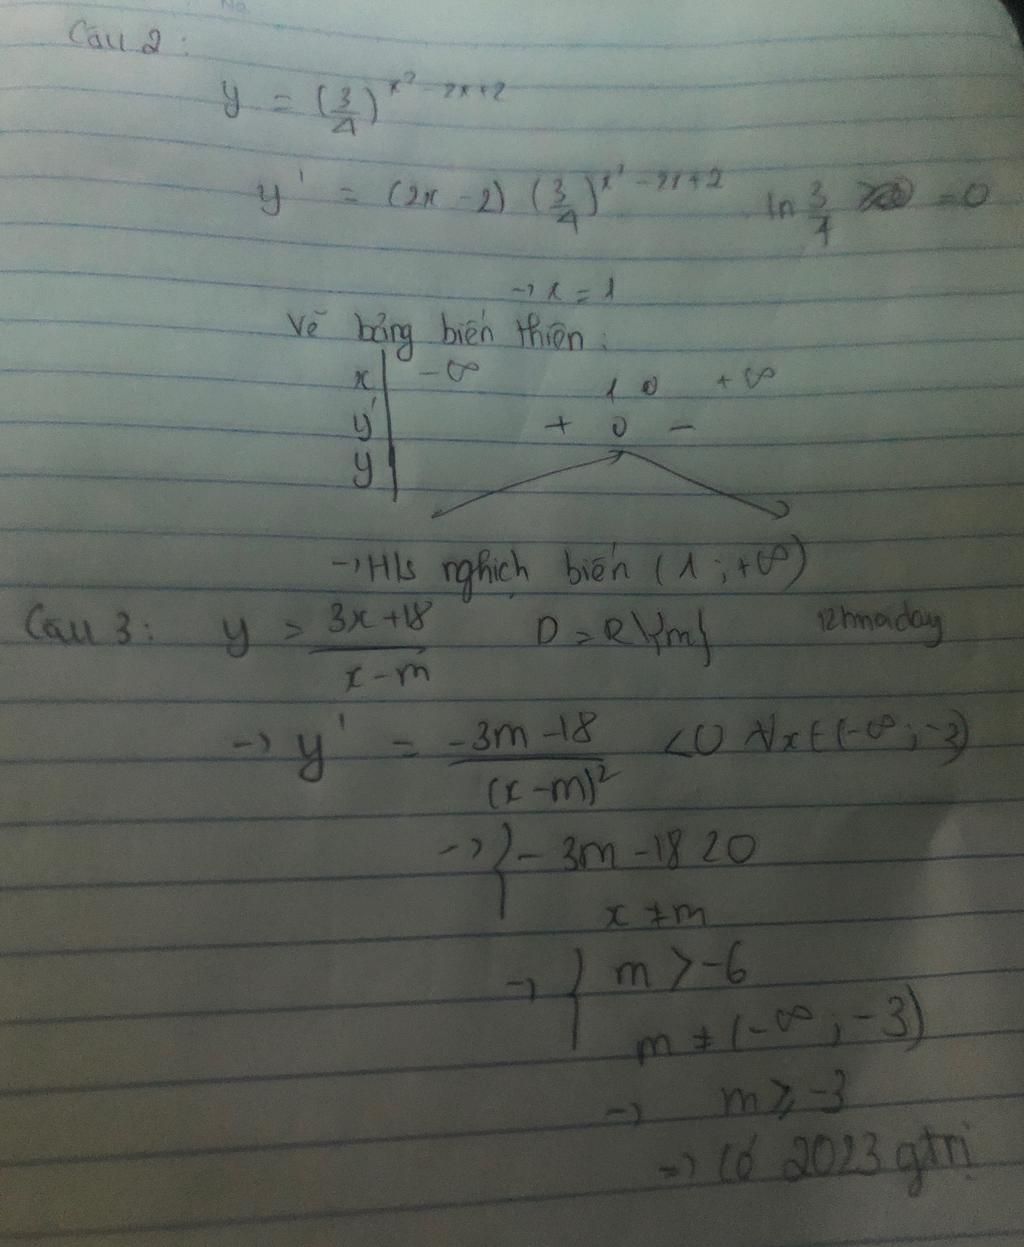 Câu 2:
y = (3/4)^x²-2x+2
y' = (2x-2) (3/4)^x²-2x+2 ln 3/4 =0
→ x = 1
Vẽ bảng biến thiên:
x -∞ 1 0 +∞
y' + 0 -
y
→ H/s nghịch biến (1;+∞)
Câu 3: y = 3x+18 / x-m D = R\{m} 12hmaday
→ y' = -3m-18 / (x-m)² <0 ∀x∈(-∞;-3)
→ { -3m-18 <0
x ≠ m
→ { m > -6
m ≠ (-∞;-3)
→ m ≥ -3
→ Có 2023 gtrị